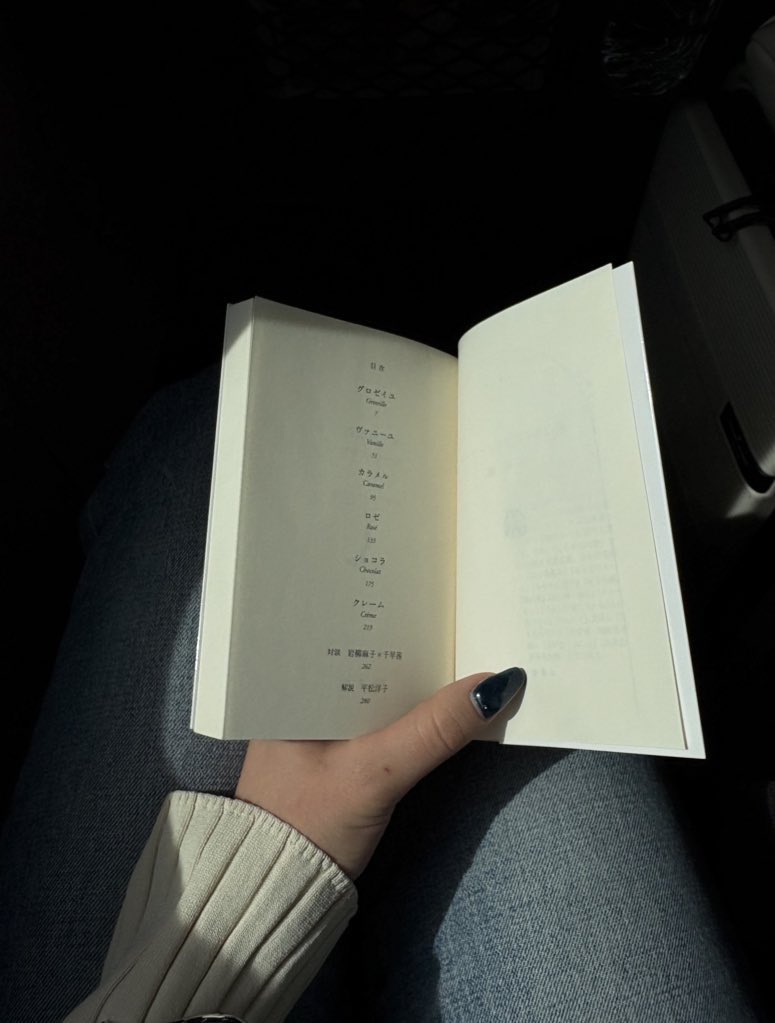 目次
グロゼイユ
Groseille
7
ヴァニーユ
Vanille
51
カラメル
Caramel
95
ロゼ
Rosé
135
ショコラ
Chocolat
175
クレーム
Crème
219
対談 岩柳麻子×千早茜
262
解説 平松洋子
280